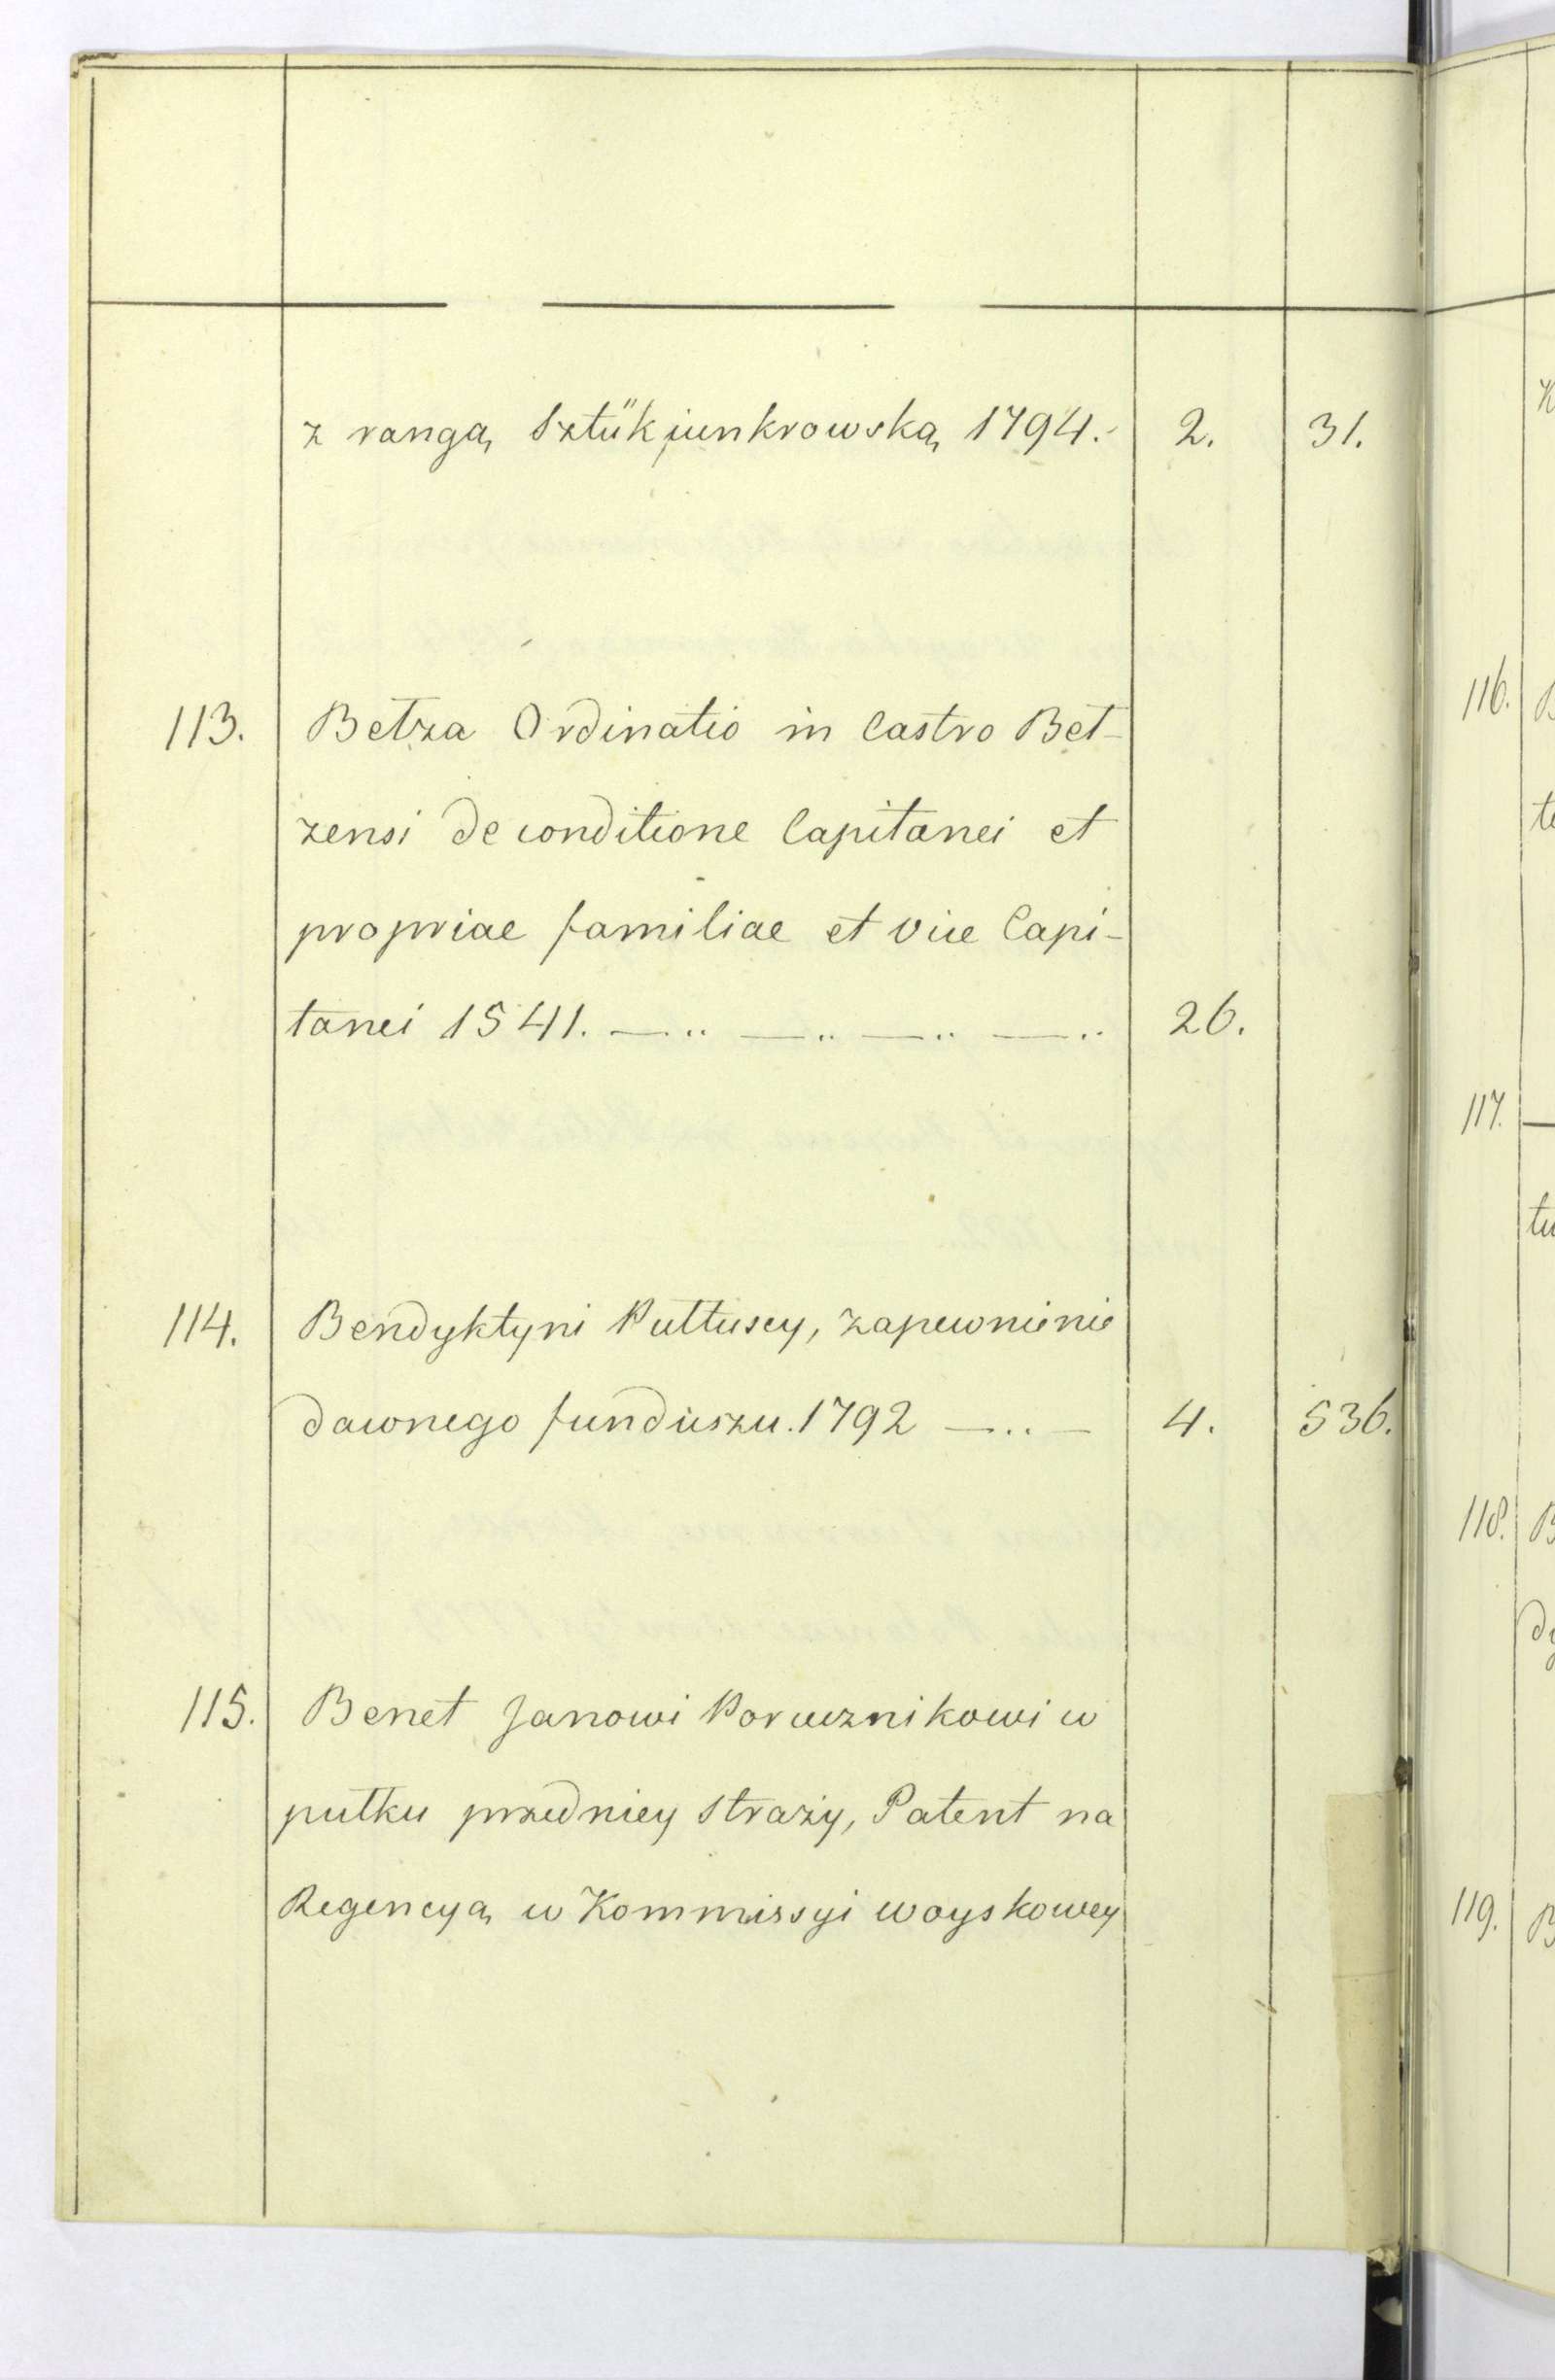 z rangą Sztükjunkrowską 1794. 2. 31.
113. Bełza Ordinatio in Castro Beł-
zensi de conditione Capitanei et
propriae familiae et Vice Capi-
tanei 1541. —.. —.. —.. —.. 26.
114. Bendyktyni Pułtuscy, zapewnienie
dawnego funduszu. 1792 —..— 4. 536.
115. Benet Janowi Porucznikowi w
pułku przedniey straży, Patent na
Regencyą w Kommissyi woyskowey
116.
117.
118.
119.